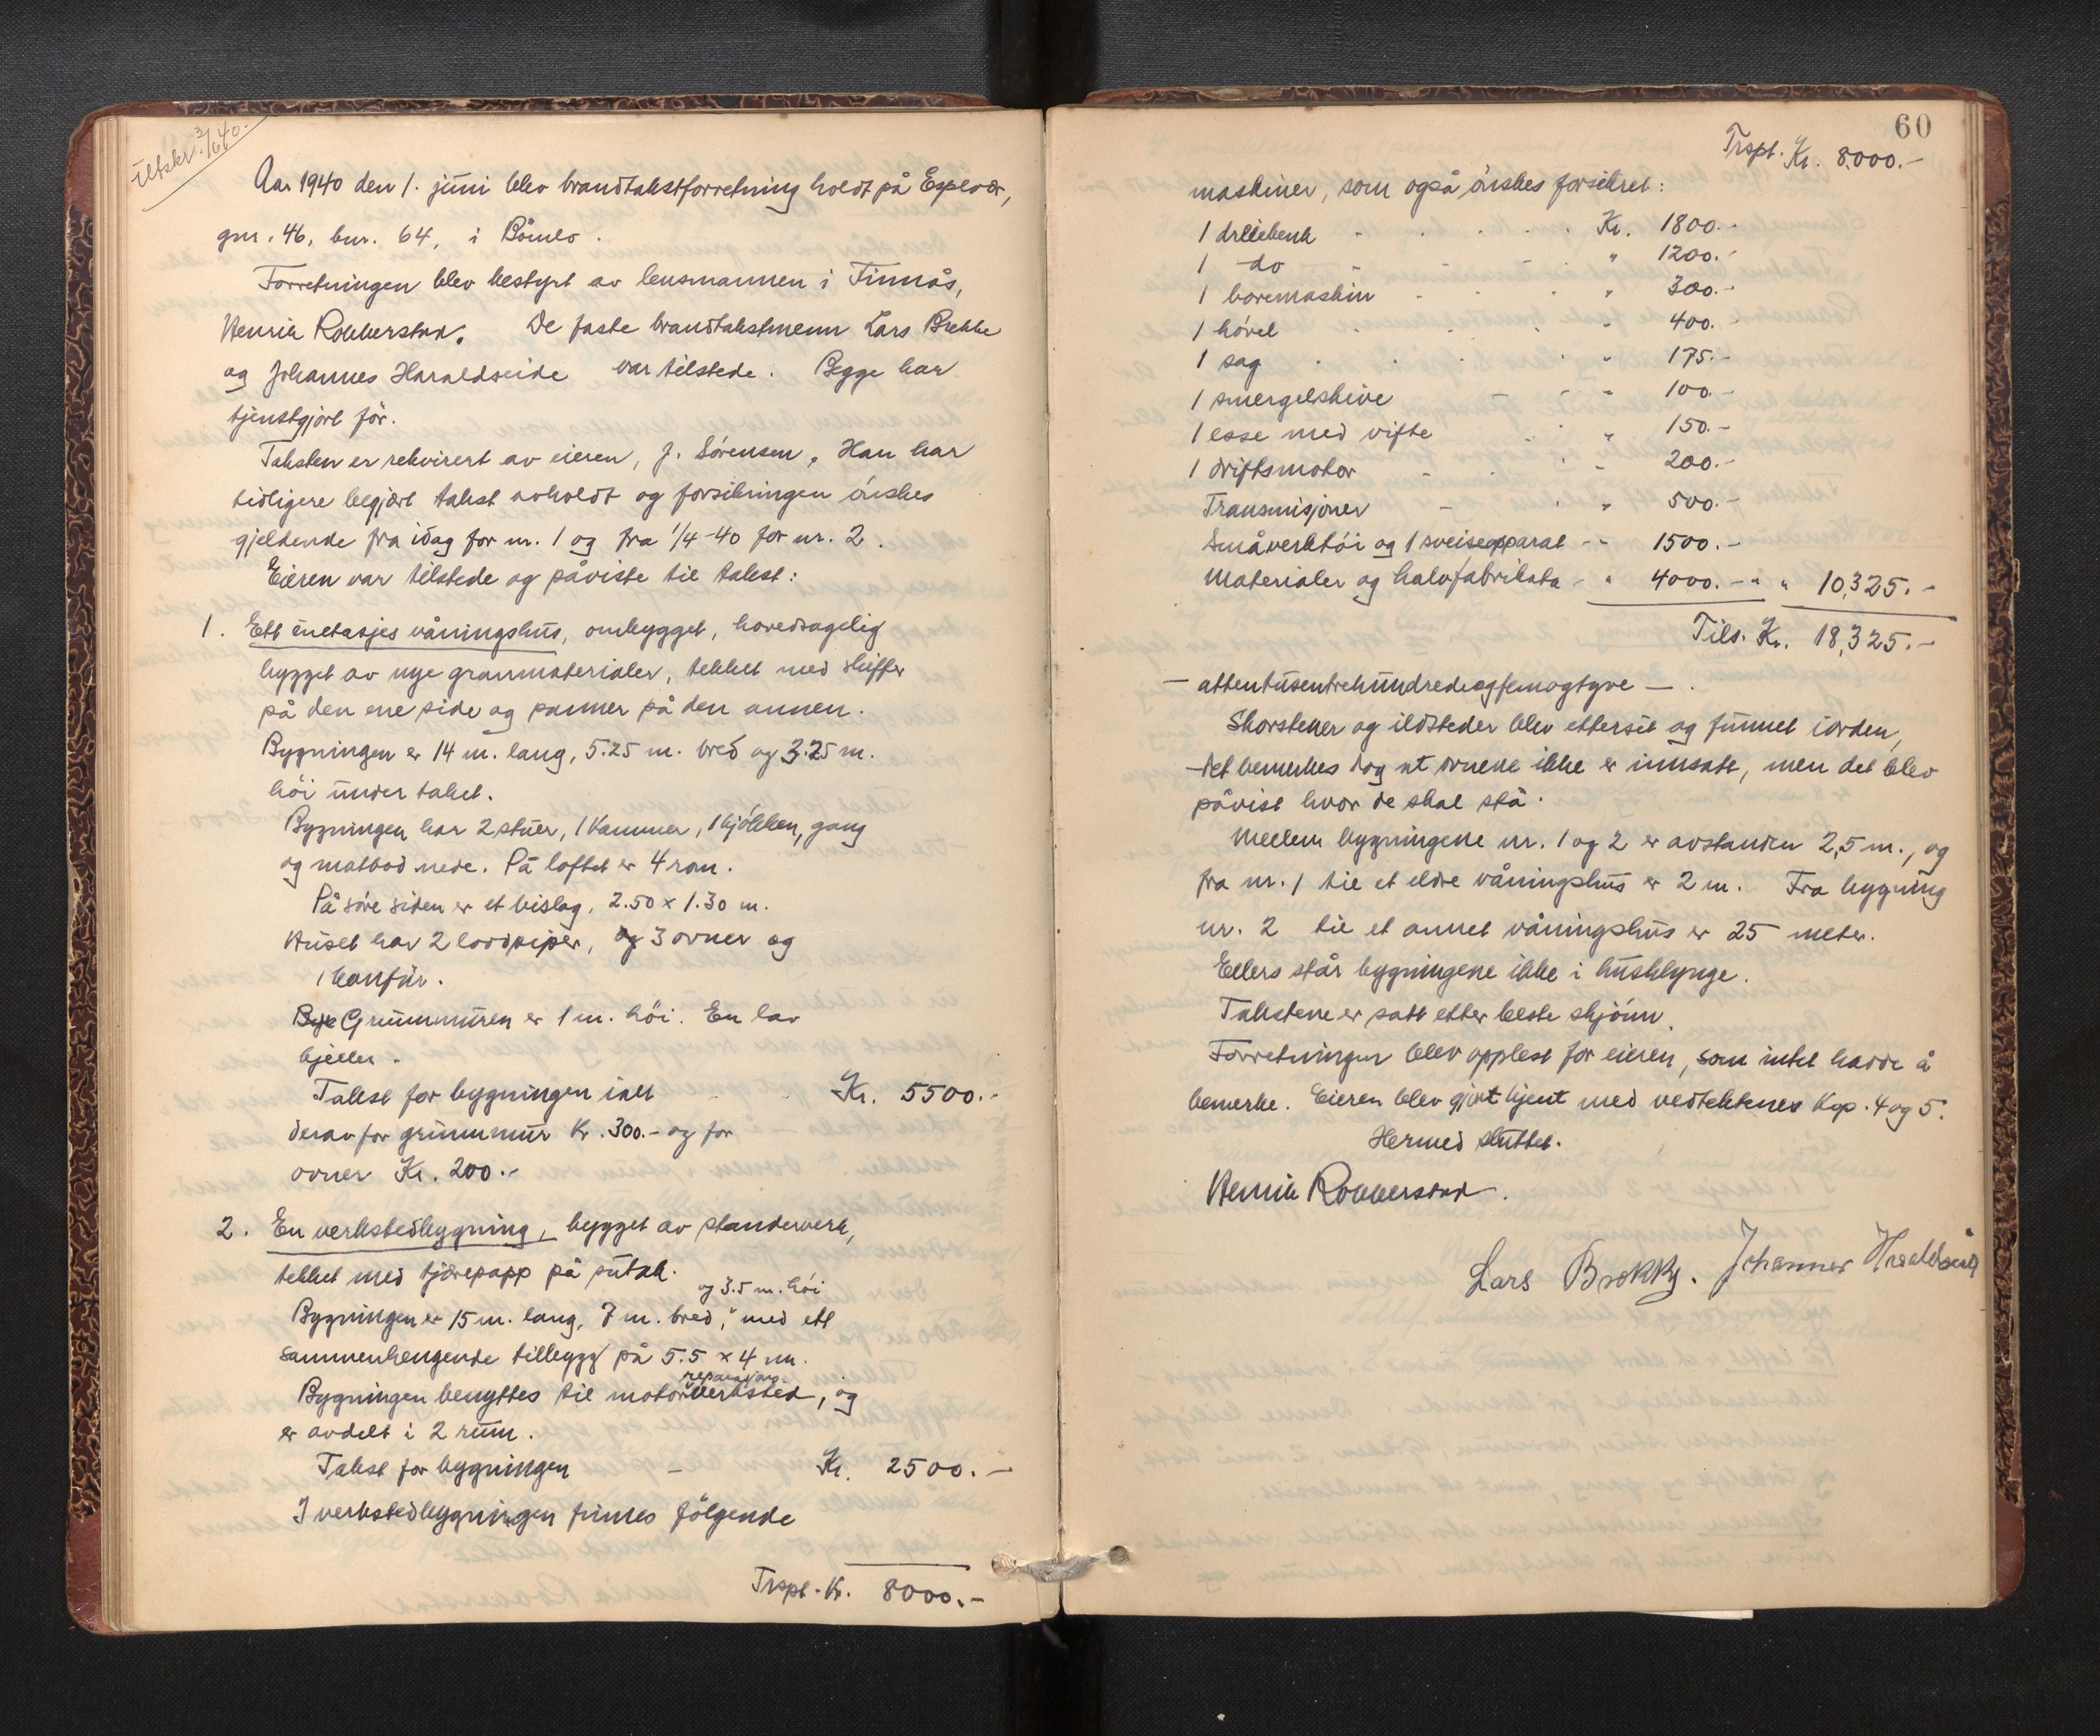 Utskr. 3/6 40.
Aar 1940 den 1. juni blev brandtakstforretning holdt på Espevær,
gnr. 46, bnr. 64, i Bömlo.
Forretningen blev bestyrt av lensmannen i Finnås,
Henrik Robberstad. De faste brandtakstmenn Lars Brekke
og Johannes Haraldseide var tilstede. Begge har
tjenstgjört för.
Taksten er rekvirert av eieren, J. Sörensen. Han har
tidligere begjært takst avholdt og forsikringen önskes
gjeldende fra idag for nr. 1 og fra 1/4-40 for nr. 2.
Eieren var tilstede og påviste til takst:
1. Ett enetasjes våningshus, ombygget, hovedsagelig
bygget av nye granmaterialer, tekket med skiffer
på den ene side og panner på den annen.
Bygningen er 14 m. lang, 5.25 m. bred og 3.25 m.
höi under taket.
Bygningen har 2 stuer, 1 kammer, 1 kjökken, gang
og matbod nede. På loftet er 4 rom.
På söre siden er et bislag, 2.50 x 1.30 m.
Huset har 2 lodpiper, og 3 ovner og
1 komfür.
Byg Grunnmuren er 1 m. höi. En lav
kjeller.
Takst for bygningen ialt - - Kr. 5500.-
derav for grunnmur Kr. 300.- og for
ovner Kr. 200.-
2. En verkstedbygning, bygget av standerverk,
tekket med tjærepapp på sutak.
og 3.5 m. höi
Bygningen er 15 m. lang, 7 m. bred, " med ett
sammenhengende tilbygg på 5.5 x 4 m.
reparasjons-
Bygningen benyttes til motorverksted, og
er avdelt i 2 rum.
Takst for bygningen - Kr. 2500.-
I verkstedbygningen finnes fölgende
Trspt. Kr. 8000.-
60
Trspt. Kr. 8000.-
maskiner, som også önskes forsikret:
1 dreiebenk - - - - - Kr. 1800.-
1 do - - - - " 1200.-
1 boremaskin - - - " 300.-
1 hövel - - - - " 400.-
1 sag - - - - - " 175.-
1 smergelskive - - " 100.-
1 esse med vifte - - " 150.-
1 driftsmotor - - - - 200.-
Transmisjoner - - " 500.-
Småverktöi og 1 sveiseapparat - - 1500.-
Materialer og halvfabrikata - " 4000.- " " 10,325.-
Tils. Kr. 18,325.-
- attentusentrehundredeogfemogtyve -.
Skorstener og ildsteder blev ettersét og funnet iorden,
- det bemerkes dog at ovnene ikke er innsatt, men det blev
påvist hvor de skal stå.
Mellem bygningene nr. 1 og 2 er avstanden 2,5 m., og
fra nr. 1 til et eldre våningshus er 2 m. Fra bygning
nr. 2 til et annet våningshus er 25 meter.
Ellers står bygningene ikke i husklynge.
Takstene er satt etter beste skjönn.
Forretningen blev opplest for eieren, som intet hadde å
bemerke. Eieren blev gjort kjent med vedtektenes kap. 4 og 5.
Hermed sluttet.
Henrik Robberstad.
Lars Brekke. Johannes Haraldseid